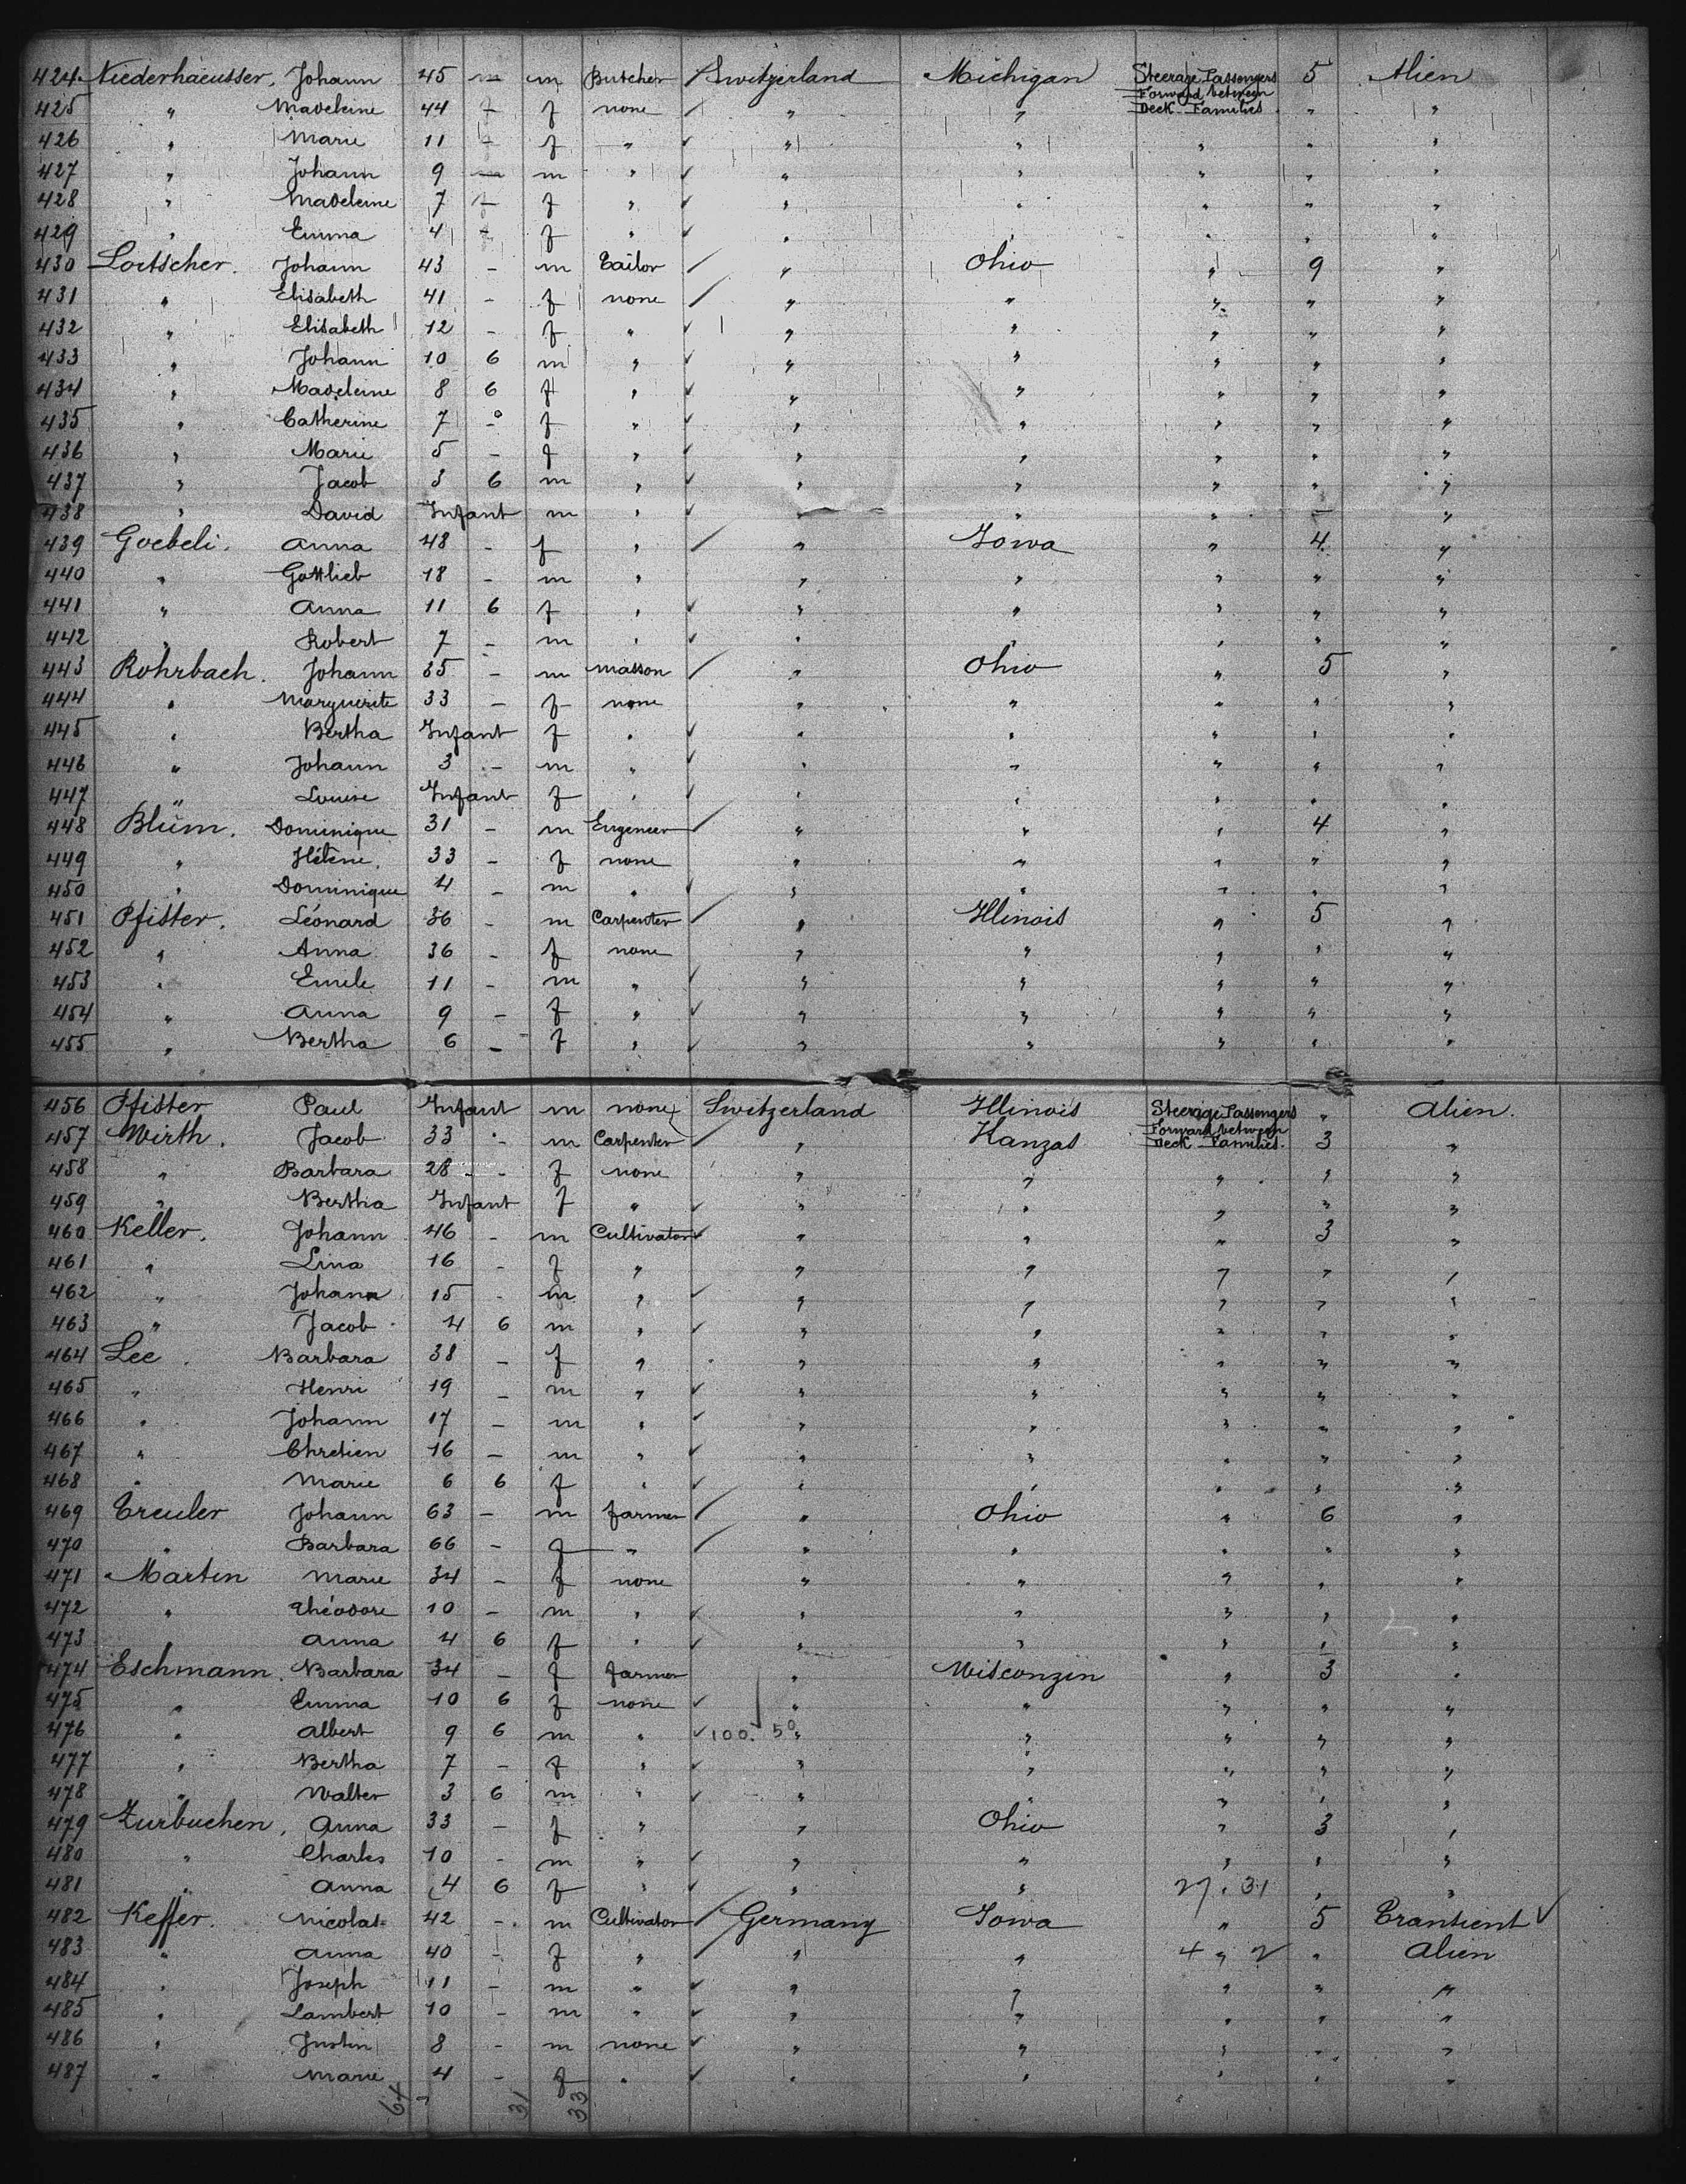 424 Niederhaeusser, Johann 45 — m Butcher / Switzerland Michigan Steerage Passengers Forward between Deck Families 5 Alien
425 " Madeleine 44 - f none / " " " "
426 " Marie 11 - f " ✓ " " " " "
427 " Johann 9 — m " ✓ " " " " "
428 " Madeleine 7 - f " ✓ " " " " "
429 " Emma 4 - f " ✓ " " " " "
430 Loetscher. Johann 43 - m Tailor / " Ohio " 9 "
431 " Elisabeth 41 - f none / " " " " "
432 " Elisabeth 12 - f " ✓ " " " " "
433 " Johann 10 6 m " ✓ " " " " "
434 " Madeleine 8 6 f " ✓ " " " " "
435 " Catherine 7 - f " ✓ " " " " "
436 " Marie 5 - f " ✓ " " " " "
437 " Jacob 3 6 m " ✓ " " " " "
438 " David Infant m " ✓ " " " " "
439 Goebeli. Anna 48 - f " / " Iowa " 4 "
440 " Gottlieb 18 - m " " " " " "
441 " Anna 11 6 f " ✓ " " " " "
442 " Robert 7 - m " ✓ " " " " "
443 Rohrbach. Johann 35 - m masson / " Ohio " 5 "
444 " Marguerite 33 - f none " " " " "
445 " Bertha Infant f " ✓ " " " " "
446 " Johann 3 - m " ✓ " " " " "
447 " Louise Infant f " ✓ " " " " "
448 Blüm. Dominique 31 - m Engeneer / " " " 4 "
449 " Hélène. 33 - f none " " " " "
450 " Dominique 4 - m " ✓ " " " " "
451 Pfister. Léonard 36 - m Carpenter / " Illinois " 5 "
452 " Anna 36 - f none " " " " "
453 " Emile 11 - m " ✓ " " " " "
454 " Anna 9 - f " ✓ " " " " "
455 " Bertha 6 - f " ✓ " " " " "
456 Pfister Paul Infant m none Switzerland Illinois Steerage Passengers Forward between Deck Families. " Alien.
457 Wirth. Jacob 33 - m Carpenter / " Kanzas 3 "
458 " Barbara 28 - f none " " " " "
459 " Bertha Infant f " ✓ " " " " "
460 Keller. Johann 46 - m Cultivator ✓ " " " 3 "
461 " Lina 16 - f " " " " " "
462 " Johann 15 - m " ✓ " " " " "
463 " Jacob 4 6 m " ✓ " " " " "
464 Lee. Barbara 38 - f " " " " " "
465 " Henri 19 - m " ✓ " " " " "
466 " Johann 17 - m " ✓ " " " " "
467 " Chretien 16 - m " ✓ " " " " "
468 " Marie 6 6 f " ✓ " " " " "
469 Treuler Johann 63 - m farmer / " Ohio " 6 "
470 " Barbara 66 - f " / " " " " "
471 Martin Marie 34 - f none " " " " "
472 " Théodore 10 - m " ✓ " " " " "
473 " Anna 4 6 f " ✓ " " " " "
474 Eschmann. Barbara 34 - f farmer " Wisconzin " 3 "
475 " Emma 10 6 f none ✓ " " " " "
476 " Albert 9 6 m " ✓ 100. 50 " " " " "
477 " Bertha 7 - f " ✓ " " " " "
478 " Walter 3 6 m " ✓ " " " " "
479 Zurbuchen. Anna 33 - f " " Ohio " 3 "
480 " Charles 10 - m " ✓ " " " " "
481 " Anna 4 6 f " ✓ " " 27. 31 " "
482 Keffer. Nicolas 42 - m Cultivator / Germany Iowa " 5 Transient ✓
483 " Anna 40 - f " / " " 4 " 2 " Alien
484 " Joseph 11 - m " ✓ " " " " "
485 " Lambert 10 - m " ✓ " " " " "
486 " Justin 8 - m none ✓ " " " " "
487 " Marie 4 - f " ✓ " " " " "
64 31 33